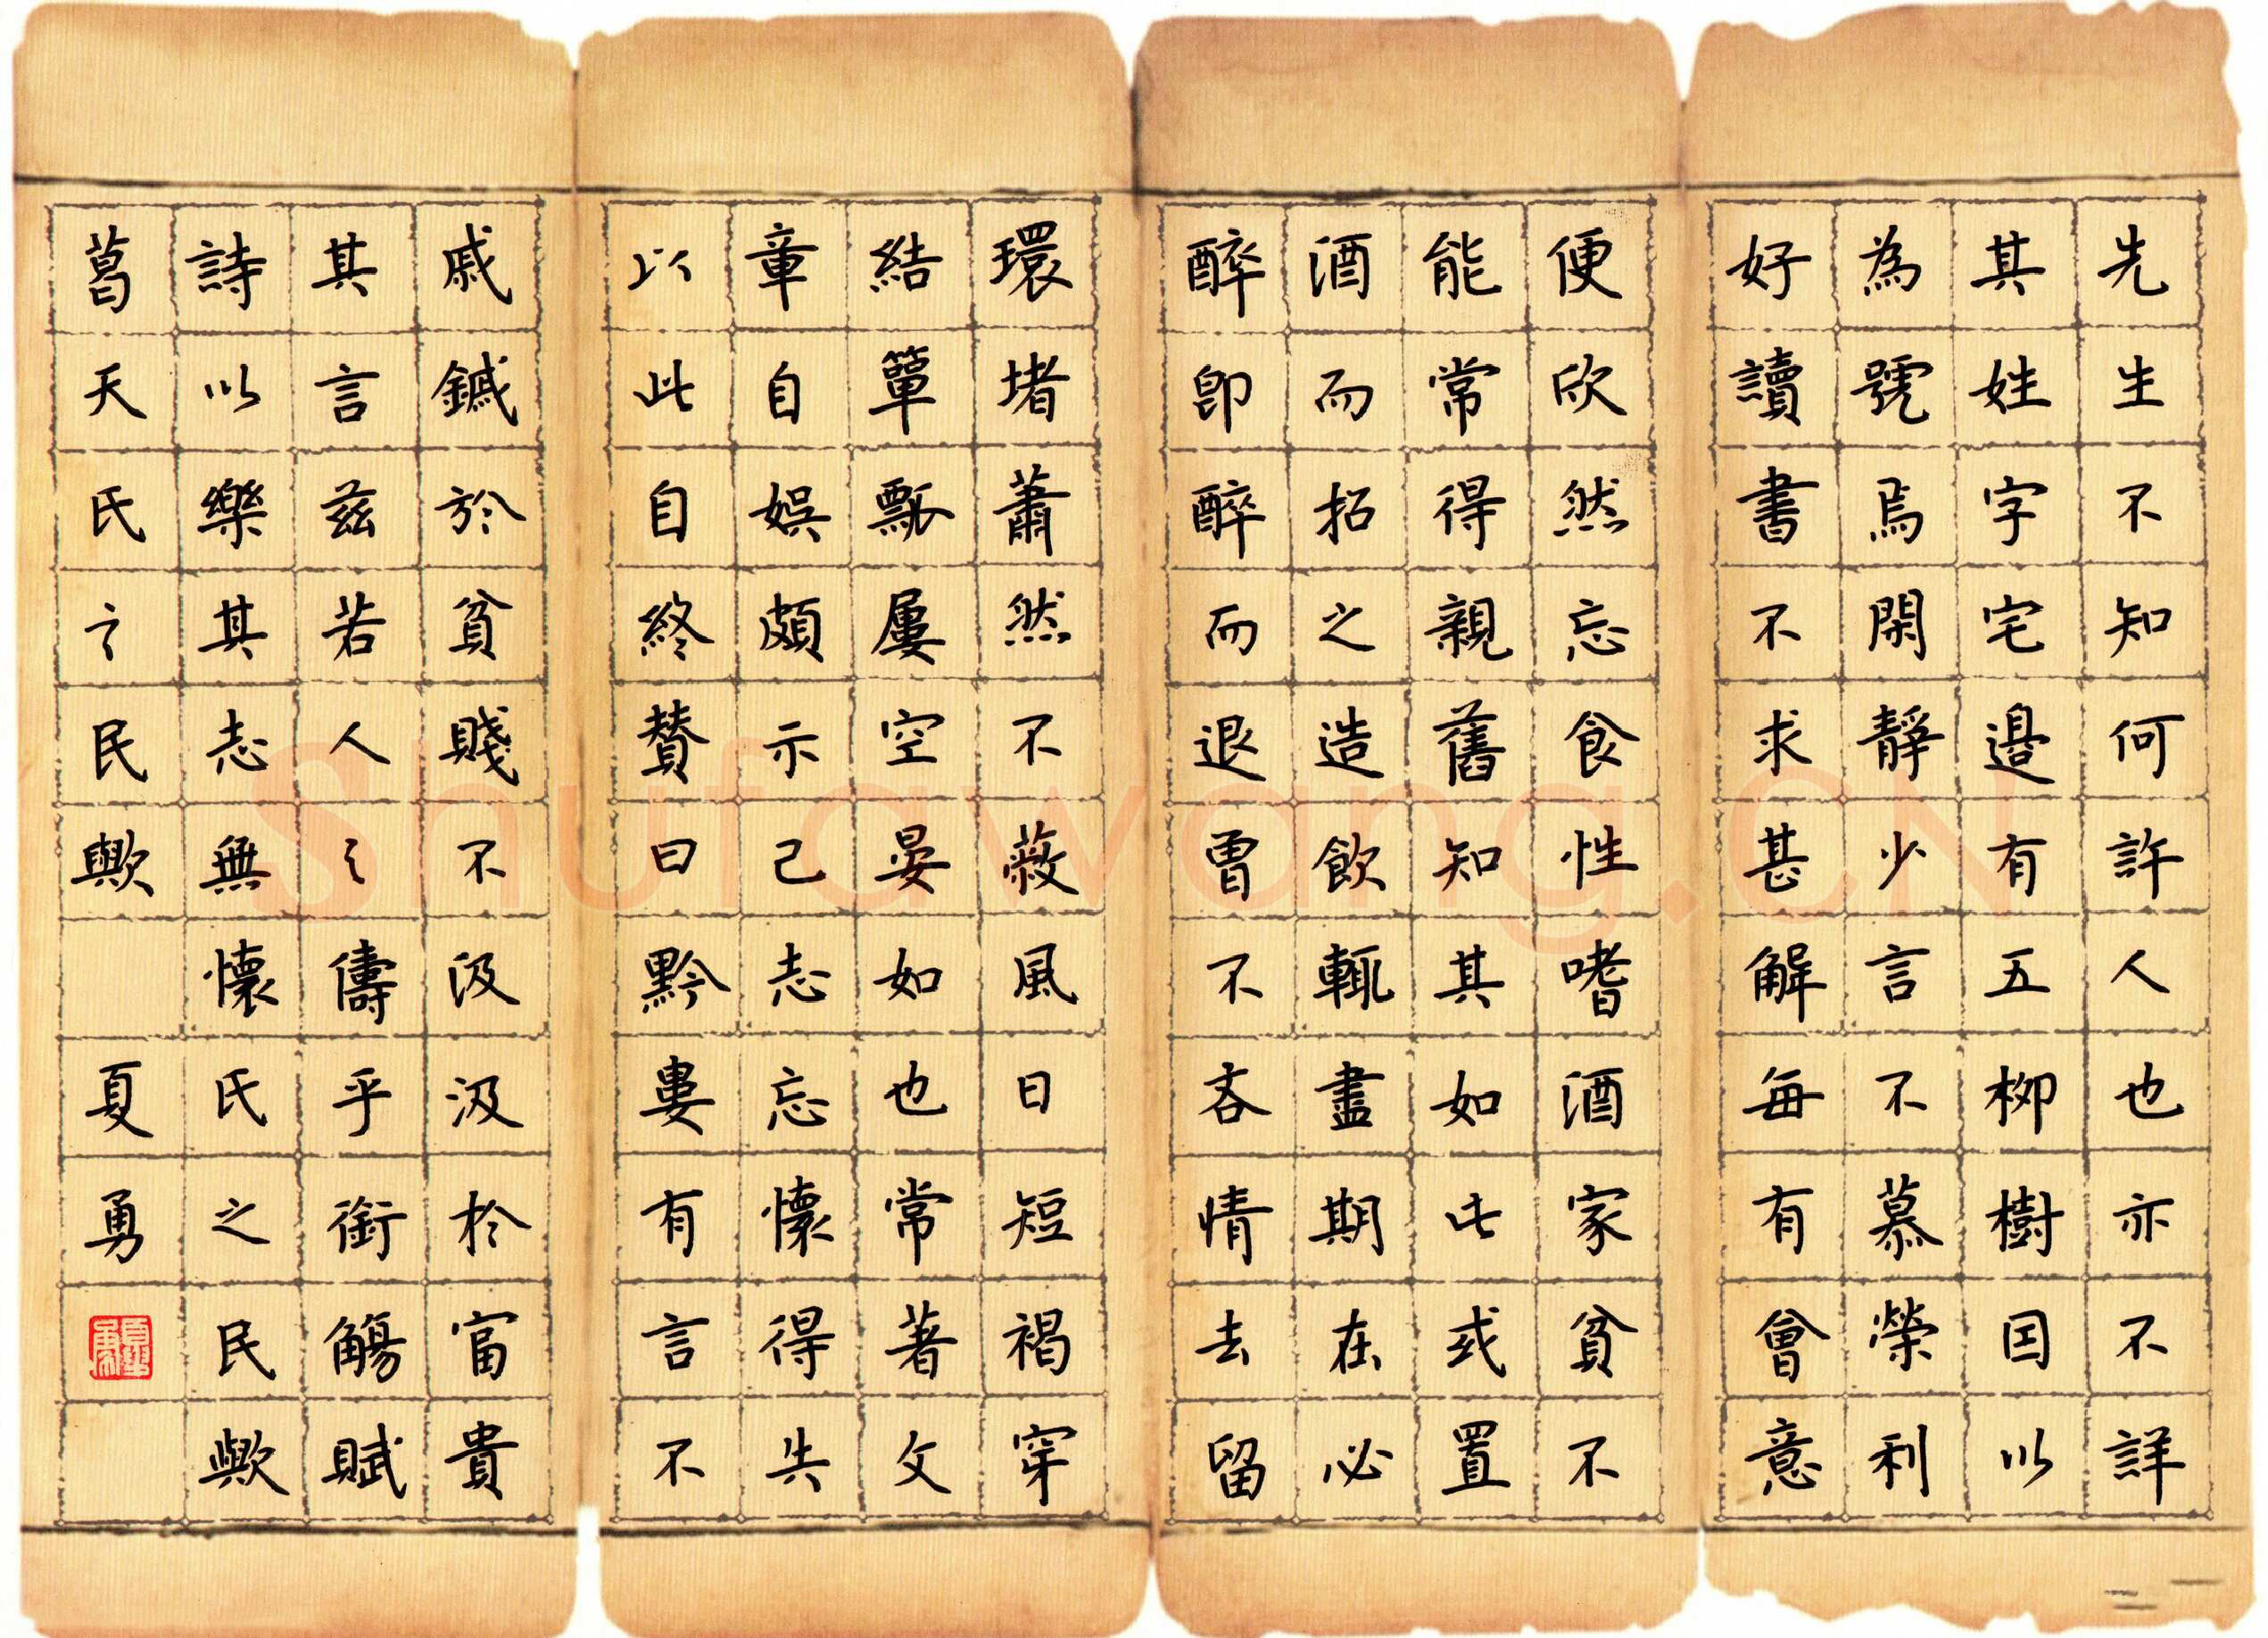 先生不知何許人也亦不詳
其姓字宅邊有五柳樹囙以
為號焉閑靜少言不慕榮利
好讀書不求甚解每有會意
便欣然忘食性嗜酒家貧不
能常得親舊知其如此或置
酒而招之造飲輒盡期在必
醉即醉而退曾不吝情去留
環堵蕭然不蔽風日短褐穿
結簞瓢屢空晏如也常著文
章自娛頗示己志忘懷得失
以此自終贊曰黔婁有言不
戚鏚於貧賤不汲汲於富貴
其言茲若人之儔乎銜觴賦
詩以樂其志無懷氏之民歟
葛天氏之民歟 夏勇
Shufawang.CN